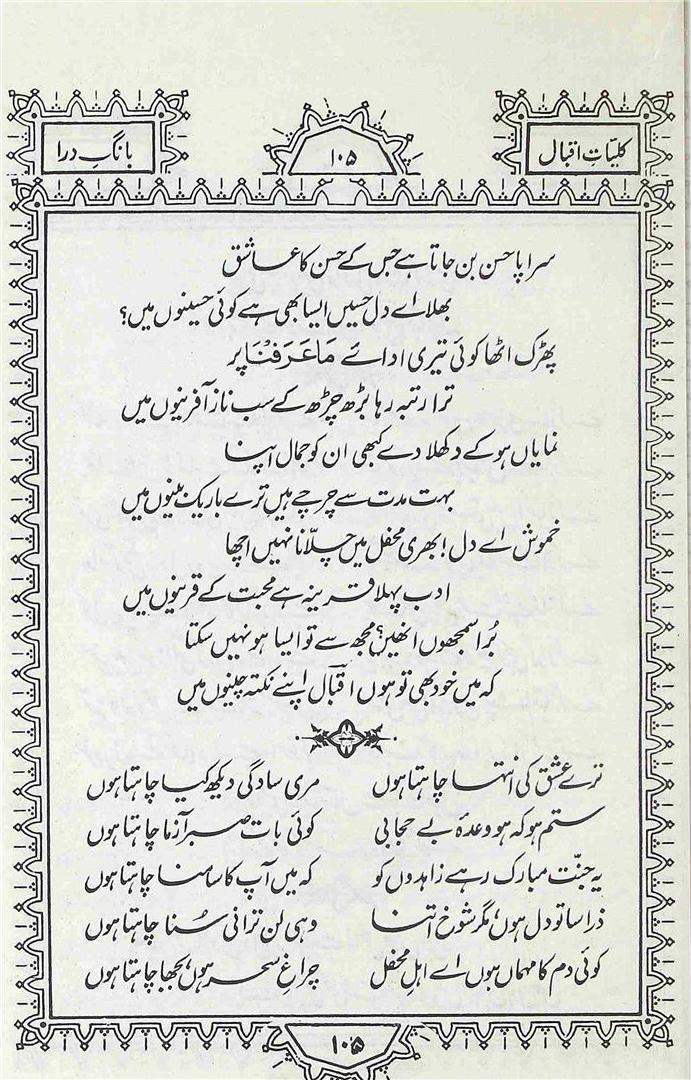 کلیّاتِ اقبال
۱۰۵
بانگِ درا
سراپا حسن بن جاتا ہے جس کے حسن کا عاشق
بھلا اے دل حسیں ایسا بھی ہے کوئی حسینوں میں؟
پھڑک اٹھا کوئی تیری ادائے مَاعَرَفْنَا پر
ترا رتبہ رہا بڑھ چڑھ کے سب ناز آفرینوں میں
نمایاں ہو کے دکھلا دے کبھی ان کو جمال اپنا
بہت مدت سے چرچے ہیں ترے باریک بینوں میں
خموش اے دل! بھری محفل میں چلّانا نہیں اچھا
ادب پہلا قرینہ ہے محبت کے قرینوں میں
بُرا سمجھوں انھیں؟ مجھ سے تو ایسا ہو نہیں سکتا
کہ میں خود بھی تو ہوں اقبالؔ اپنے نکتہ چینوں میں
ترے عشق کی انتہا چاہتا ہوں مری سادگی دیکھ کیا چاہتا ہوں
ستم ہو کہ ہو وعدۂ بے حجابی کوئی بات صبر آزما چاہتا ہوں
یہ جنّت مبارک رہے زاہدوں کو کہ میں آپ کا سامنا چاہتا ہوں
ذرا سا تو دل ہوں، مگر شوخ اتنا وہی لن ترانی سُنا چاہتا ہوں
کوئی دم کا مہماں ہوں اے اہلِ محفل چراغِ سحر ہوں، بجھا چاہتا ہوں
۱۰۵